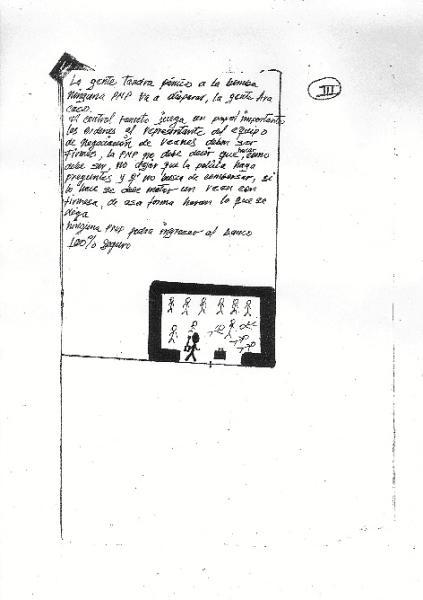 La gente Tendra pánico a la bomba
ninguna PNP va a disparar, la gente Ara
caso.
el control remoto juega un papel importante
las ordenes al representante del equipo
de negociación de reenes deben ser
firmes, la PNP no debe decir que hacer, como
debe ser, no dejar que la policia haga
preguntas y si no busca de convensar, si
lo hace se debe matar un reen con
firmesa, de esa forma haran lo que se
diga
ninguna PNP podra ingresar al banco
100% seguro
III